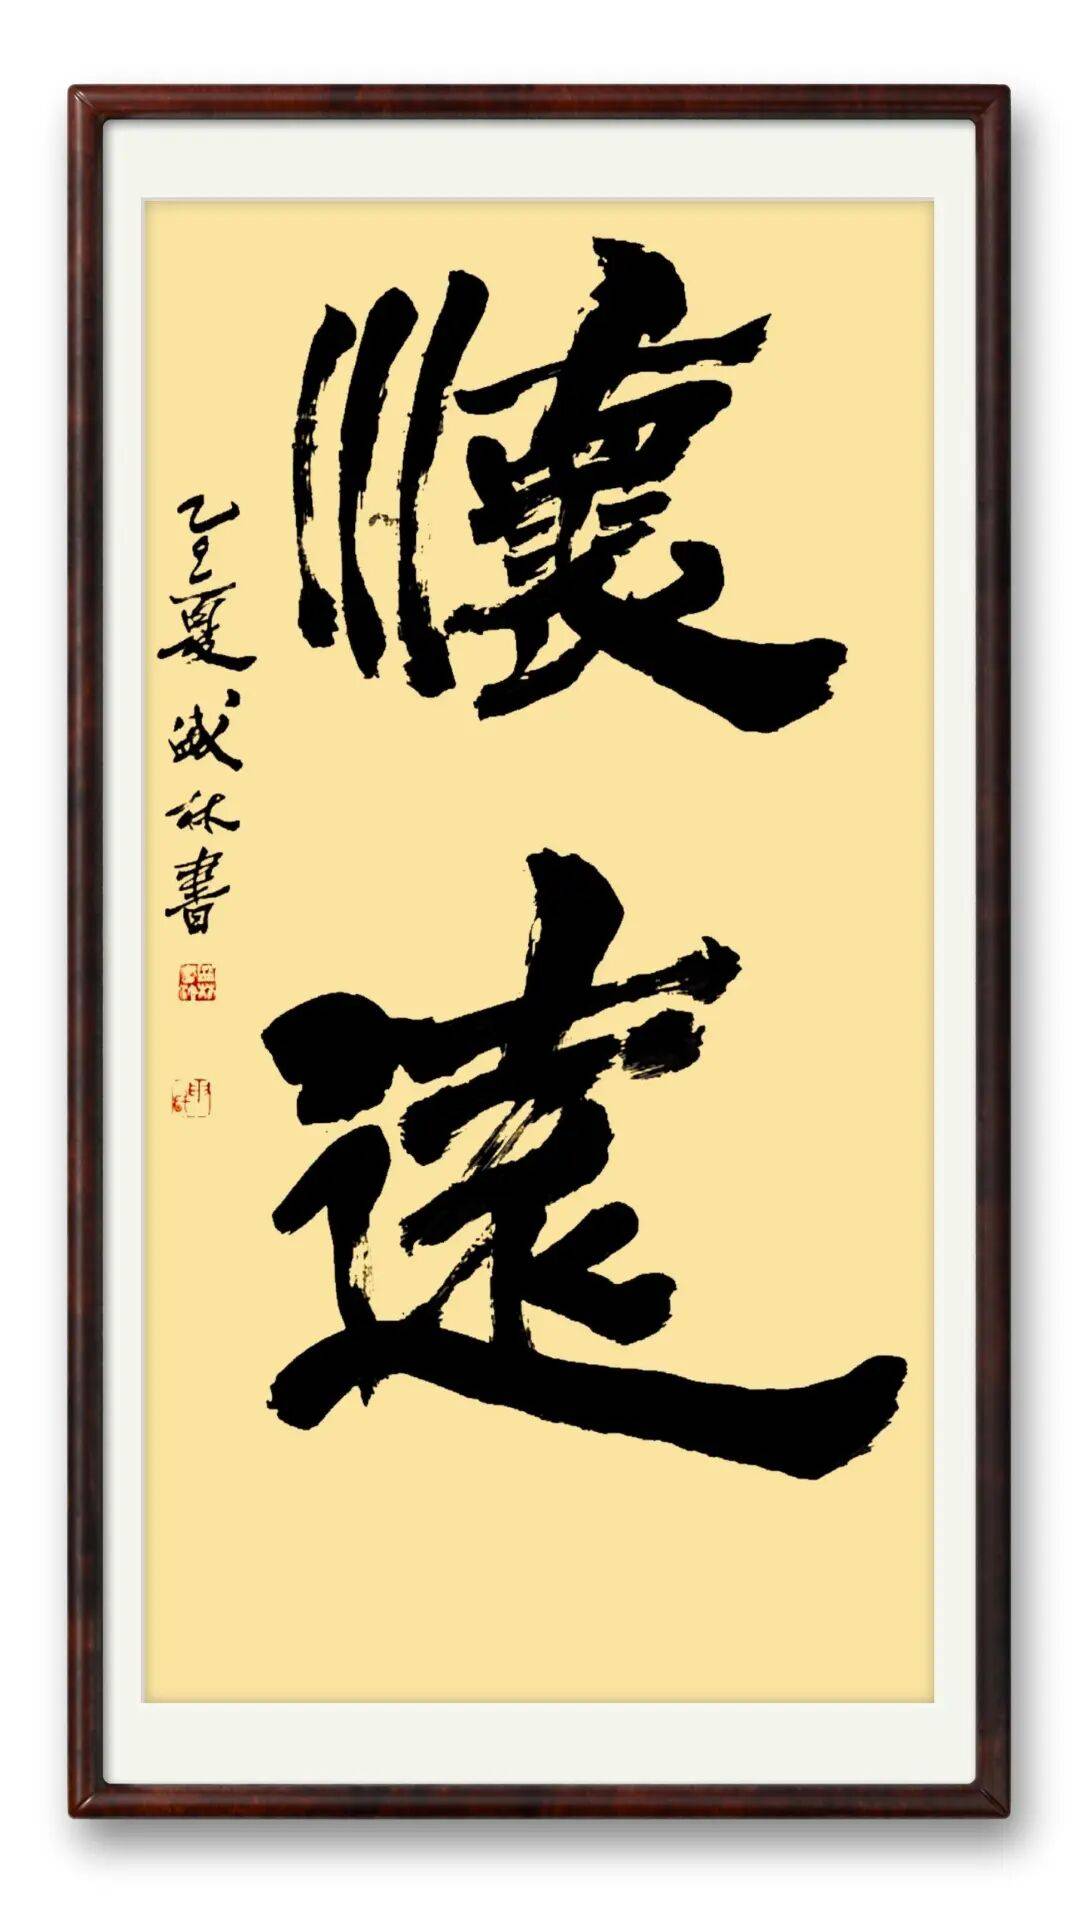 懷遠
乙巳夏盛林書